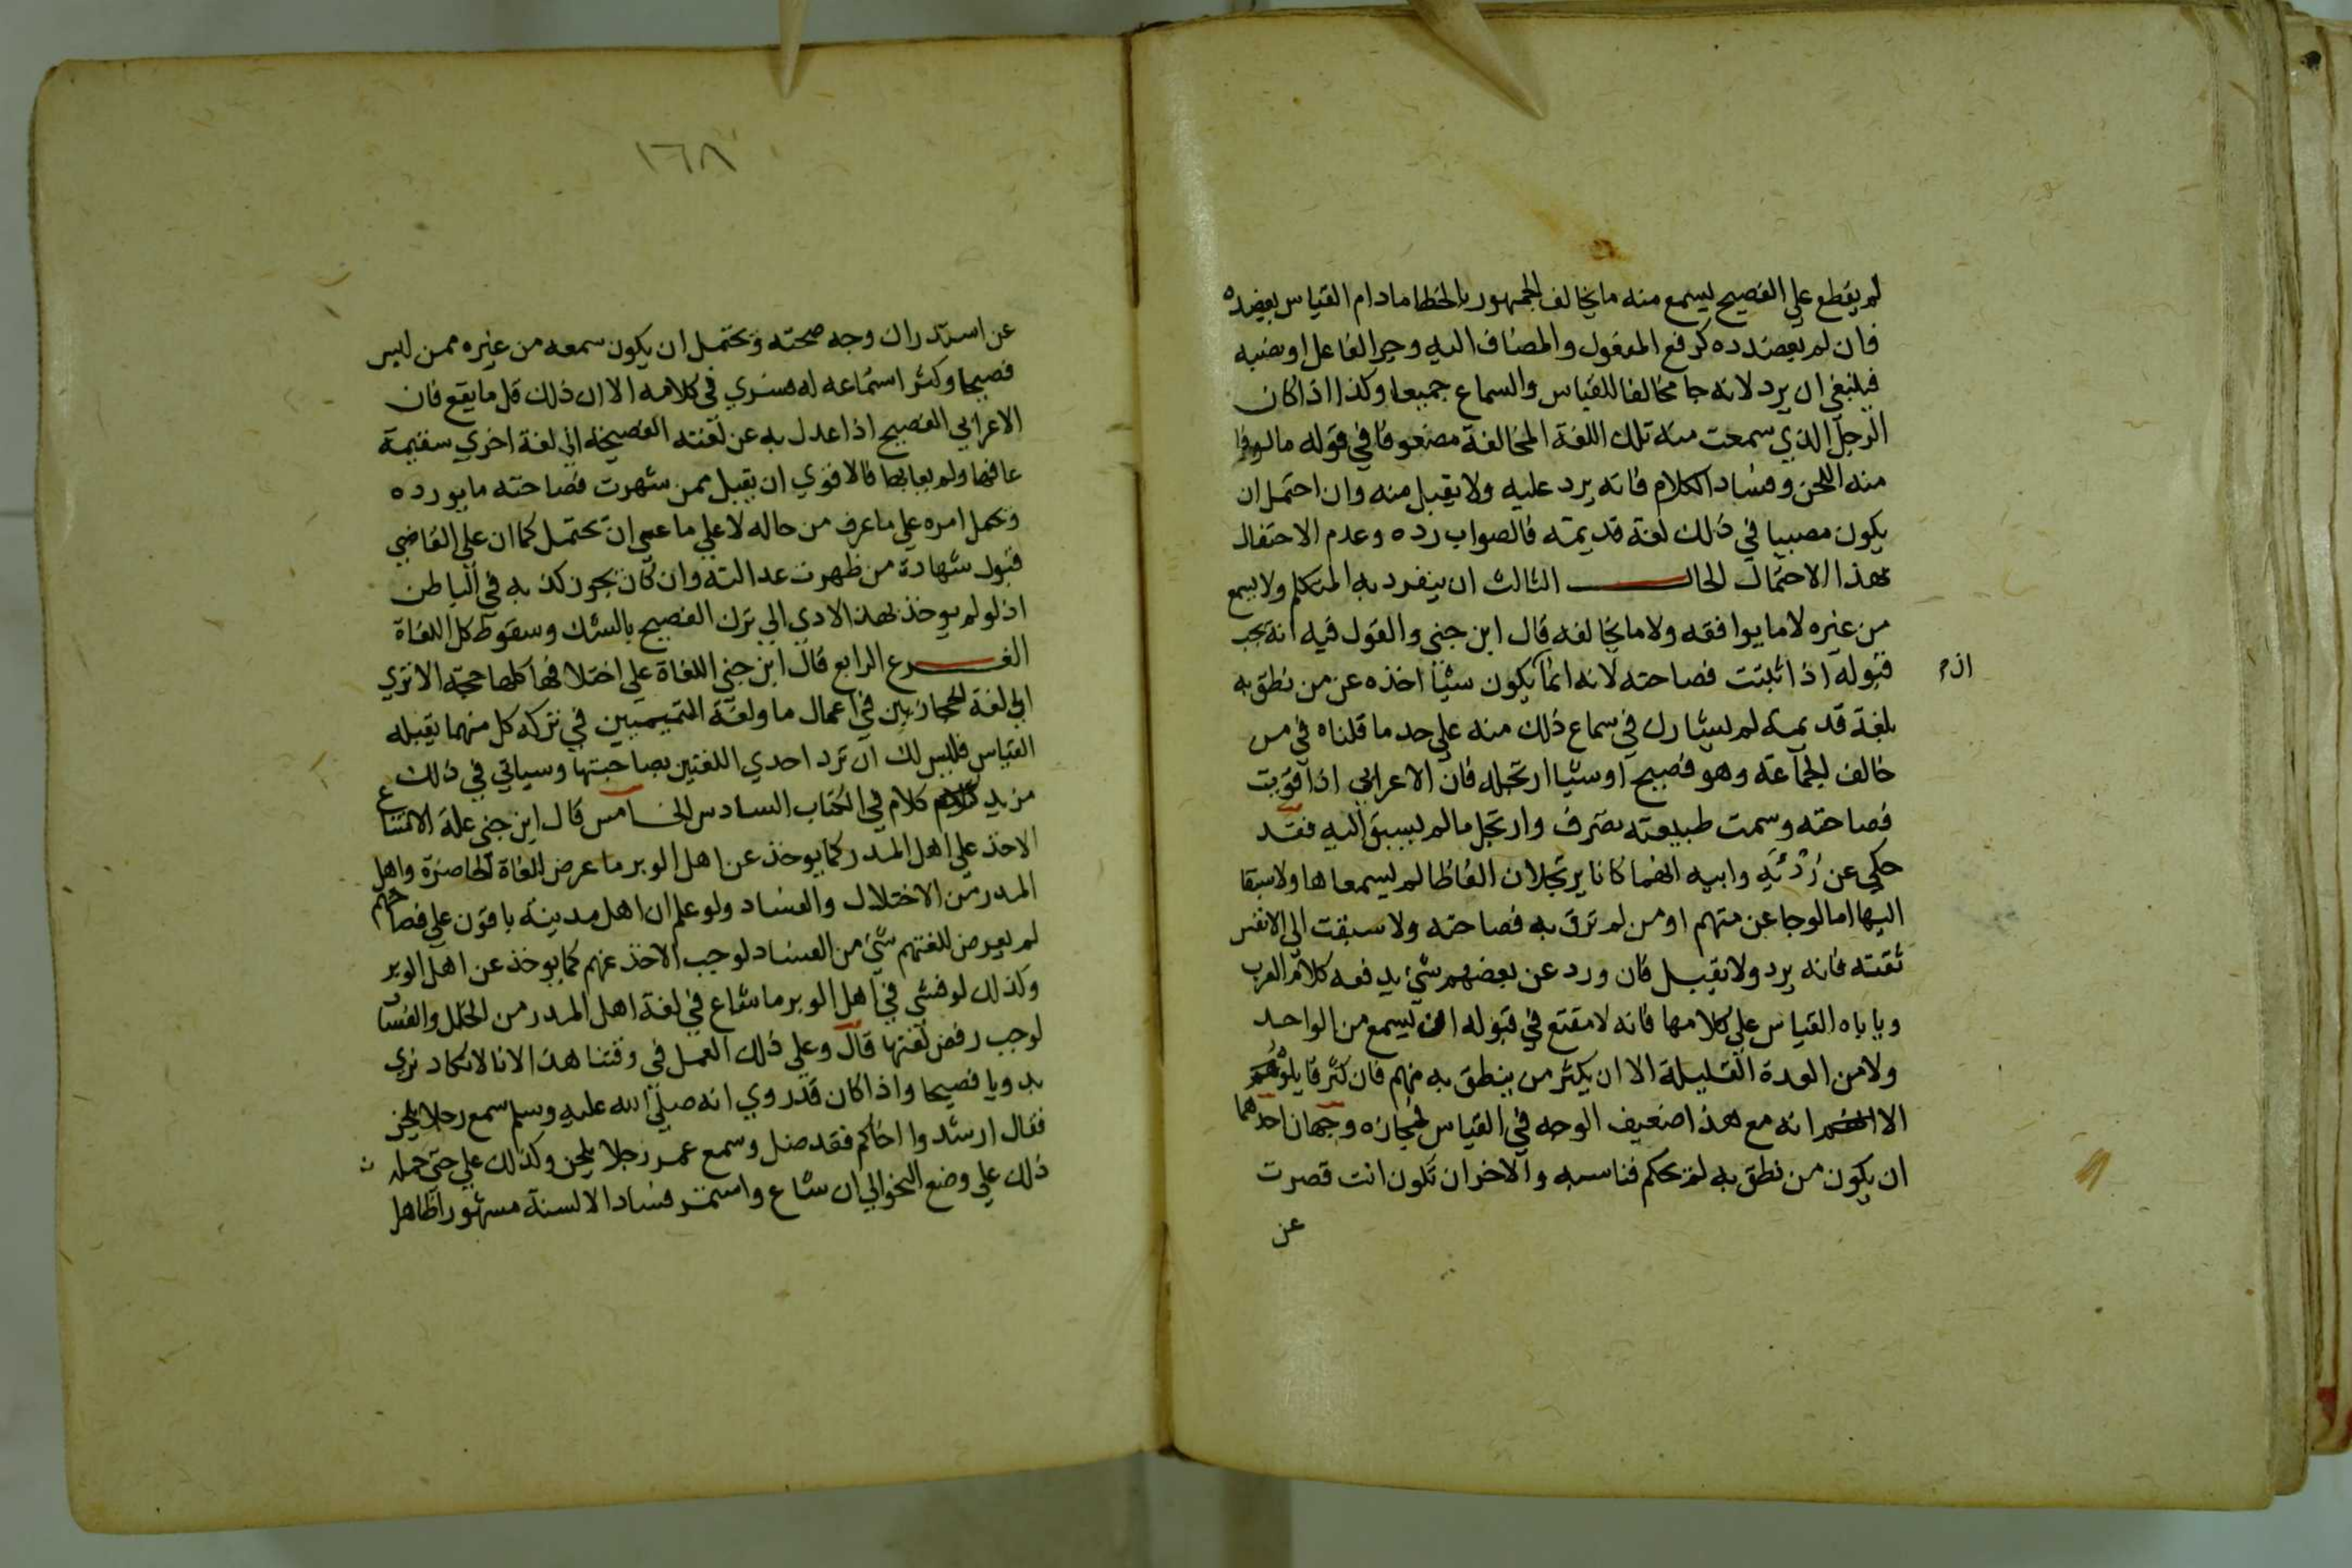 لم يقطع علي الفصيح يسمع منه مايخالف الجمهور بالخطا مادام القياس يعضده
فان لم يعضده كرفع المفعول والمضاف اليه وجر الفاعل او نصبه
فينبغي ان يرد لانه جا مخالفا للقياس والسماع جميعا وكذا اذا كان
الرجل الذي سمعت منه تلك اللغة المخالفة مضعوفا في قوله مالوفا
منه اللحن وفساد الكلام فانه يرد عليه ولا يقبل منه وان احتمل ان
يكون مصيبا في ذلك لغة قديمة فالصواب رده وعدم الاحتفال
بهذا الاحتمال الحال الثالث ان ينفرد به المتكلم ولا يسمع
من غيره لا ما يوافقه ولا ما يخالفه قال ابن جني والقول فيه انه يجب
قبوله اذا ثبتت فصاحته لانه انما يكون شيئا اخذه عن من نطق به
بلغة قديمة لم يشارك في سماع ذلك منه علي حد ما قلناه في من
خالف الجماعة وهو فصيح او شيئا ارتجله فان الاعرابي اذا قويت
فصاحته وسمت طبيعته تصرف وارتجل ما لم يسبق اليه فقد
حكي عن رُؤْبَة وابيه انهما كانا يرتجلان الفاظا لم يسمعاها ولا سبقا
اليها اما لو جا عن متهم او من لم ترق به فصاحته ولا سبقت الي الانفس
ثقته فانه يرد ولا يقبل فان ورد عن بعضهم شئ يدفعه كلام العرب
وياباه القياس علي كلامها فانه لا مقنع في قبوله ان يسمع من الواحد
ولا من العدة القليلة الا ان يكثر من ينطق به منهم فان كثر قايلوه
الا انه مع هذا ضعيف الوجه في القياس فمجازه وجهان احدهما
ان يكون من نطق به لم يحكم قياسه والاخر ان تكون انت قصرت
عن
١٦٨
عن استدراك وجه صحته ويحتمل ان يكون سمعه من غيره ممن ليس
فصيحا وكثر استماعه له فسري في كلامه الا ان ذلك قل ما يقع فان
الاعرابي الفصيح اذا عدل به عن لغته الفصيحة الي لغة اخري سقيمة
عافها ولم يعابها فالاقوي ان يقبل ممن شهرت فصاحته ما يورده
ويحمل امره علي ما عرف من حاله لا علي ما عسي ان يحتمل كما ان علي القاضي
قبول شهادة من ظهرت عدالته وان كان يجوز كذبه في الباطن
اذ لو لم يوخذ بهذا لادي الي ترك الفصيح بالشك وسقوط كل اللغاة
الفرع الرابع قال ابن جني اللغاة علي اختلافها كلها حجة الا تري
ان لغة الحجازيين في اعمال ما ولغة التميميين في تركه كل منهما يقبله
القياس فليس لك ان ترد احدي اللغتين بصاحبتها وسياتي في ذلك
مزيد كلام في الكتاب السادس الخامس قال ابن جني علة الامتناع
الاخذ علي اهل المدر كما يوخذ عن اهل الوبر ما عرض للغاة الحاضرة واهل
المدر من الاختلال والفساد ولو علم ان اهل مدينة باقون علي فصاحتهم
لم يعرض للغتهم شئ من الفساد لوجب الاخذ عنهم كما يوخذ عن اهل الوبر
وكذلك لو فشي في اهل الوبر ما شاع في لغة اهل المدر من الخلل والفساد
لوجب رفض لغتها قال وعلي ذلك العمل في وقتنا هذا لانا لا نكاد نري
بدويا فصيحا واذا كان قد روي انه صلي الله عليه وسلم سمع رجلا يلحن
فقال ارشدوا اخاكم فقد ضل وسمع عمر رجلا يلحن وكذلك علي حتي حمله
ذلك علي وضع النحو الي ان شاع واستمر فساد الالسنة مشهورا ظاهرا